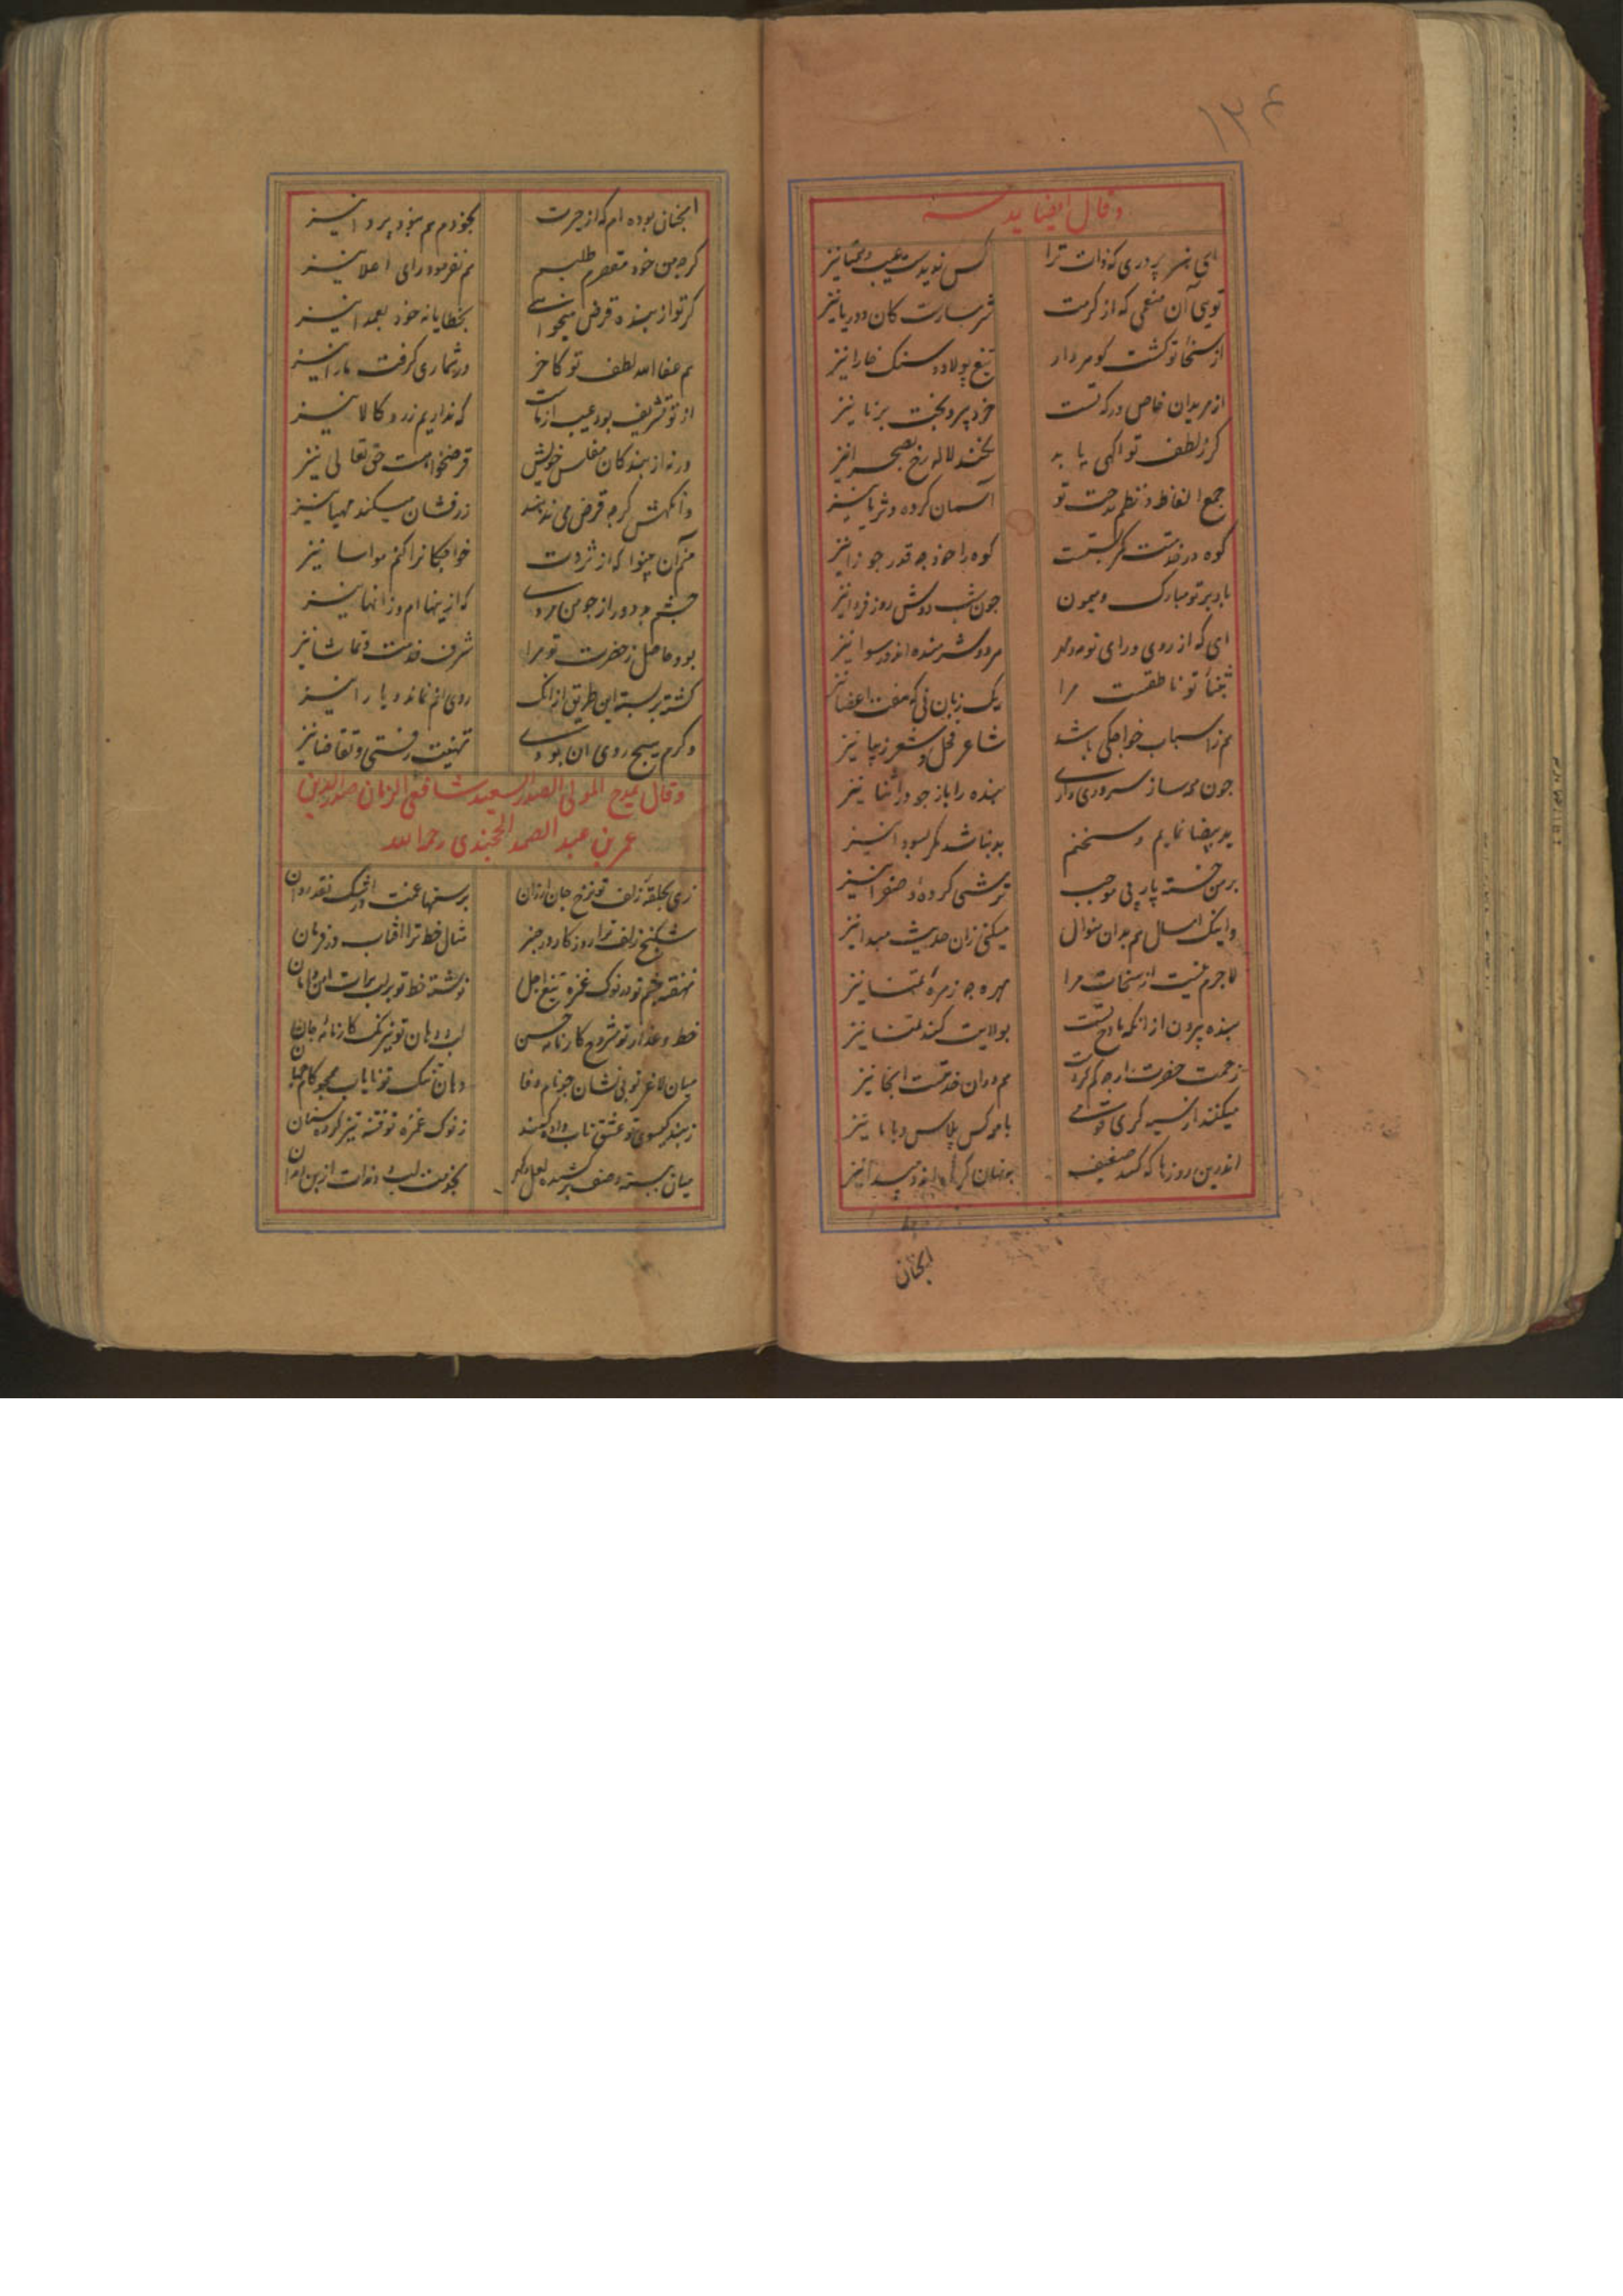 ۱۳۴
وقال ایضا یمدحه
ای هنر پروری که ذات ترا کس ندیدست عیب و همتا نیز
تویی آن منعمی که از کرمت شرمسارست کان و دریا نیز
از سخا تو کشت کوهردار تیغ پولاد و سنک خارا نیز
از مریدان خاص درکه تست خرد پیر و بخت برنا نیز
کر ز لطف تو اکهی یابد بخندد لاله رخ بصحرا نیز
جمع الفاظ در نظم مدحت تو آسمان کرده و ثریا نیز
کوه در خدمتت کمر بستست کوه را خود چه قدر جوزا نیز
باد بر تو مبارک و میمون چون شب دوش روز فردا نیز
ای که از روی و رای تو مه و مهر هر دو شرمنده اند و رسوا نیز
بثنا تو ناطقست مرا یک زبان نی که هفت اعضا نیز
هم ز اسباب خواجکی باشد شاعر فحل و شعر زیبا نیز
چون همه ساز سروری داری بنده را باز جو در اثنا نیز
ید بیضا نمایم و سخنم بد نباشد مکر بسودا نیز
بر من خسته پار بی موجب ترشی کرده و صفرا نیز
و اینک امسال هم بدان منوال میکنی زان حدیث مبدا نیز
لاجرم نیست از سخات مرا بهره چه زهره تمنا نیز
بنده بیرون از آنکه مادح تست بولایت کند تمنا نیز
زحمت حضرت ارچه کم کردست هم دران خدمتست اینجا نیز
میکند از نسیه کری قومی با همه کس پلاس و با ما نیز
اندرین روزها که کسد ضعیف
انچنان
انچنان بوده ام که از حیرت بخودم هم نبود پروا نیز
کرچه من خود مقصرم طلبم هم نفرمود رای اعلا نیز
کر تو از بنده قرض میخواهی بخطا یا نه خود بعمدا نیز
هم عفا الله لطف تو کاخر در شماری کرفت ما را نیز
از تو تشریف بود عیب از ماست که نداریم زر و کالا نیز
ورنه از بندکان مفلس خویش قرضخواهست حق تعالی نیز
وانکهش کرچه قرض می ندهند زرفشان میکند مهیا نیز
من آن بینوا که از ثروت خواجکانرا کنم مواسا نیز
چشم بد دور از چو من مردی که ازینها ام و زانها نیز
بود حاصل ز حضرت تو مرا شرف خدمت و تماشا نیز
کشت بر بسته این طریق از آنک روی انم نماند و یارا نیز
وکرم هیچ روی آن بودی تهنیت رفتی و تقاضا نیز
وقال یمدح المولی الصدر السعید شافعی الزمان صدرالدین
عمر بن عبد الصمد الخجندی رحمه الله
زهی بحلقه زلف تو نرخ جان ارزان بر سنهاء غمت اشک نقد روان
شکنج زلف ترا روزکار در چنبر مثال خط ترا افتاب در فرمان
نهفته چشم تو در نوک غمزه تیغ اجل نوشته خط تو بر لب برات امن و امان
خط و عذار تو مشروح کارنامه حسن لب و دهان تو نیرنک کارخانه جان
میان لاغر تو بی نشان چو نام وفا دهان تنک تو نایاب همچو کام جهان
ز بند کیسوی تو عشق تاب داده کمند ز نوک غمزه تو فتنه تیز کرده سنان
میان ببسته و صف بر کشیده لعل و کهر